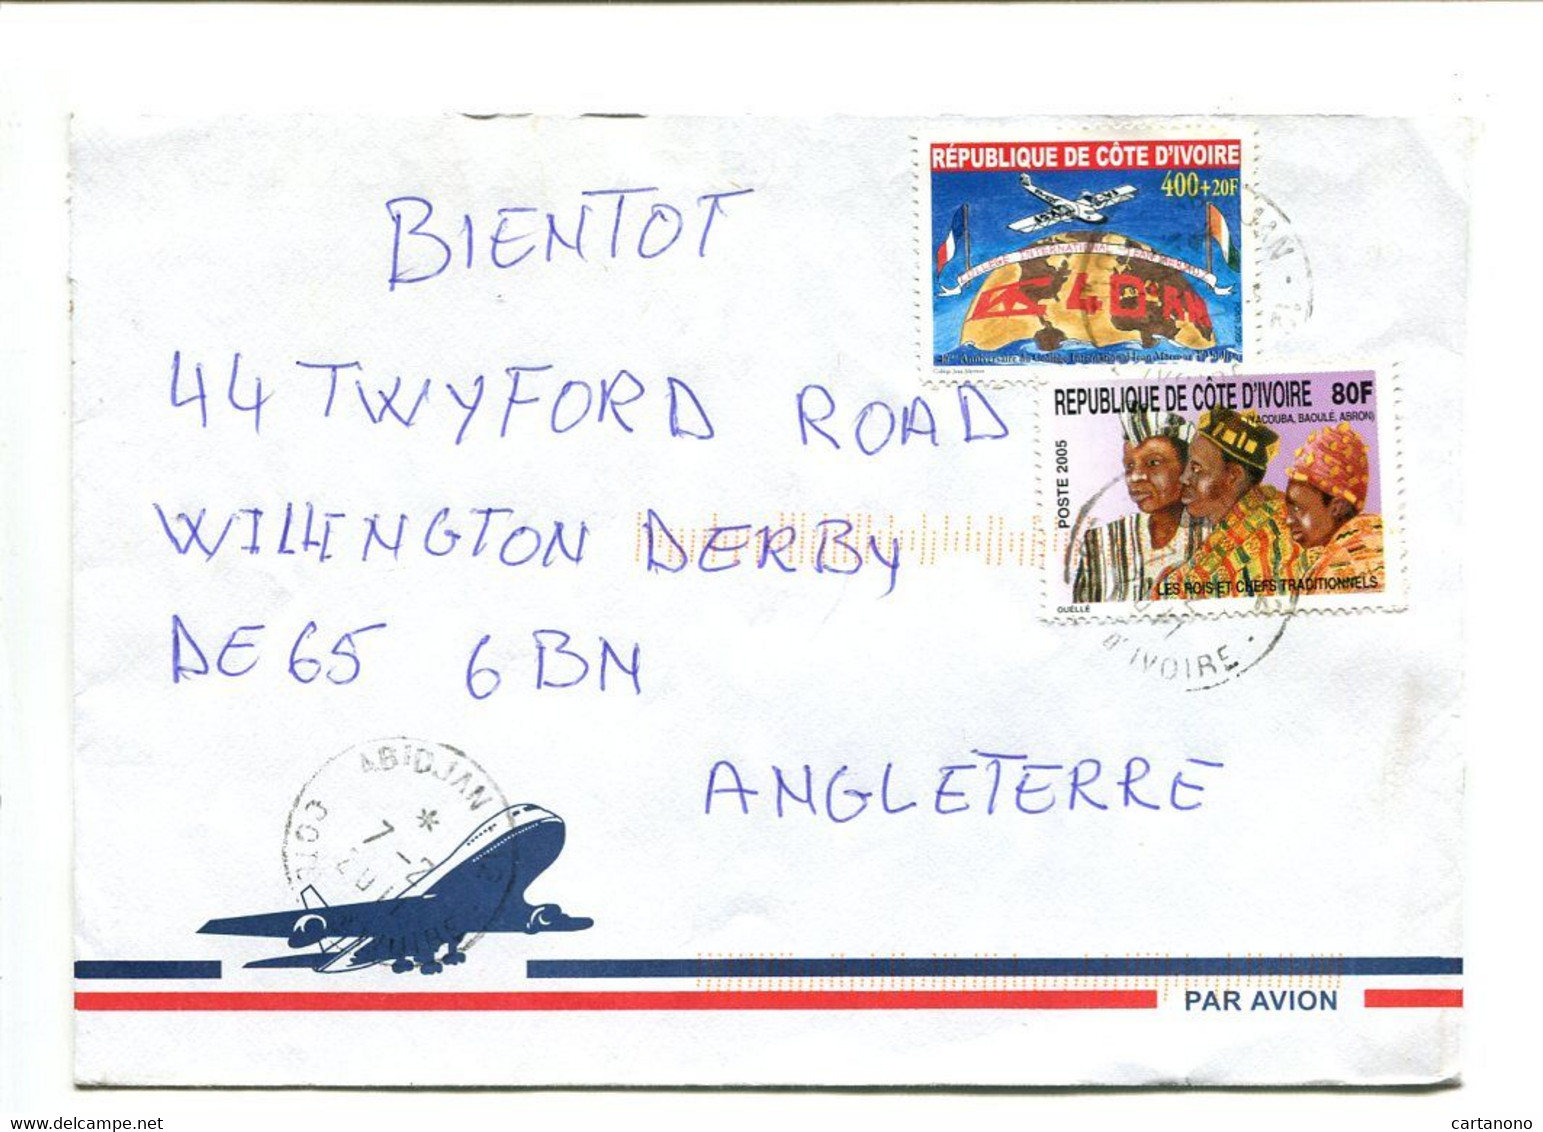 RÉPUBLIQUE DE CÔTE D'IVOIRE
400+20F
COLLEGE INTERNATIONAL
40
40ème Anniversaire du Collège International Jean Mermoz d'Abidjan
Collège Jean Mermoz
BIENTOT
44 TWYFORD ROAD
REPUBLIQUE DE CÔTE D'IVOIRE 80F
(YACOUBA, BAOULÉ, ABRON)
POSTE 2005
LES ROIS ET CHEFS TRADITIONNELS
OUELLÉ
D'IVOIRE
WILLINGTON DERBY
DE65 6BN
ANGLETERRE
ABIDJAN
7 -2
COTE
IVOIRE
PAR AVION
cartanono